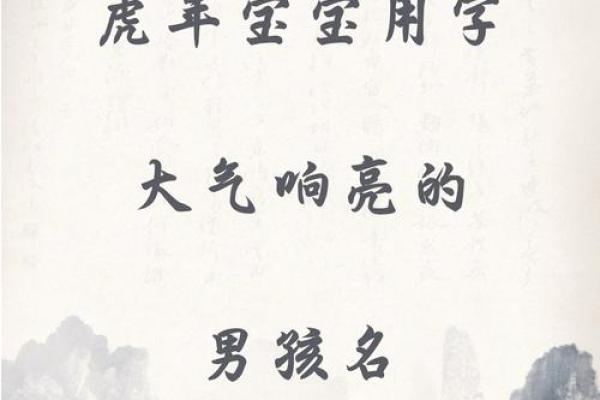 虎年宝宝用字
大气响亮的
男孩名